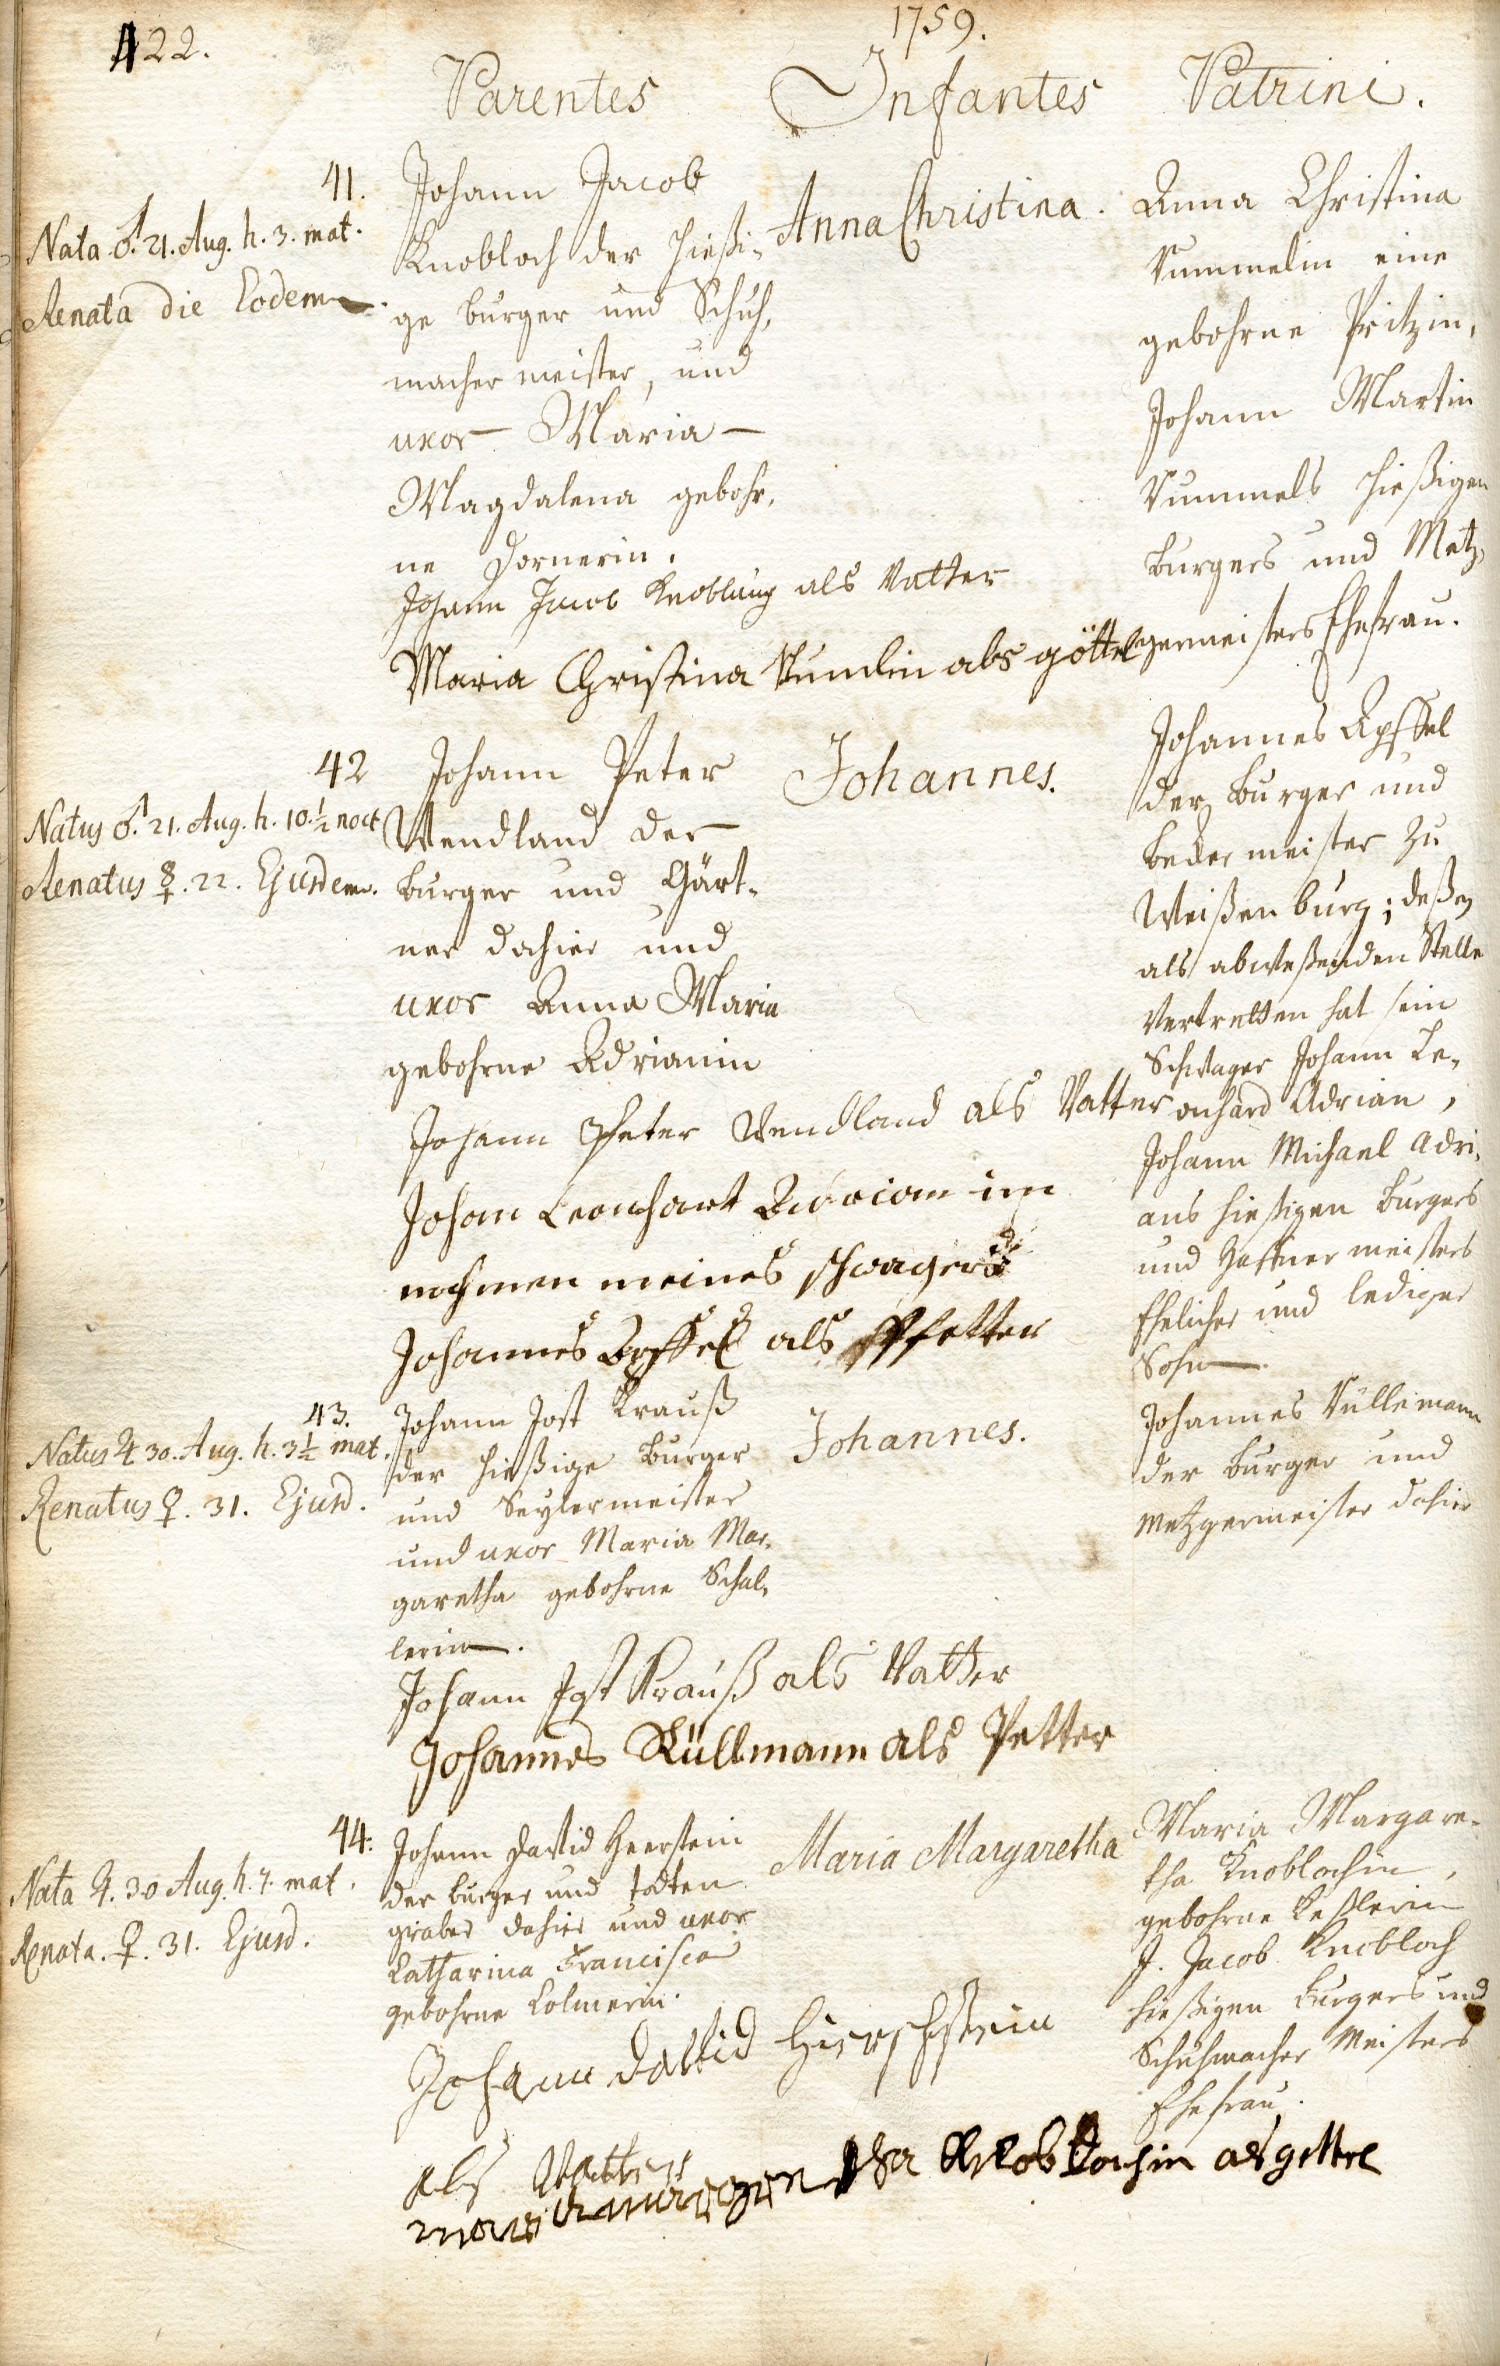 422.
1759.
Parentes Infantes Patrini.
41.
Nata ♂. 21. Aug. h. 3. mat.
Renata die Eodem.
Johann Jacob
Knobloch der hießi-
ge burger und Schuh,
macher meister, und
uxor Maria
Magdalena gebohr,
ne Dornerin.
Anna Christina.
Anna Christina
eine
gebohrne Pritzin,
Johann Martin
hießigen
burgers und Metz,
germeisters Ehefrau.
Johann Jacob Knoblauch als Vatter
Maria Christina als göttel
42
Natus ♂. 21. Aug. h. 10. ½ noct
Renatus ☿. 22. Ejusdem.
Johann Peter
Wendland der
burger und Gärt-
ner dahier und
uxor Anna Maria
gebohrne Adrianin
Johannes.
Johannes Apffel
der burger und
beder meister zu
Weißenburg; deßen
als abweßenden Stelle
Vertretten hat sein
Schwager Johann Le-
onhard Adrian,
Johann Michael Adri,
ans hießigen burgers
und Haffner meisters
Ehelicher und lediger
Sohn.
Johann Peter Wendland als Vatter
Johan Leonhart Adrian im
nahmen meines schwagers
Johannes Apffel als Pfetter
43.
Natus ♃ 30. Aug. h. 3½ mat.
Renatus ♀. 31. Ejusd.
Johann Jost Krauß
der hießige burger
und Seylermeister
und uxor Maria Mar,
garetha gebohrne Schal,
lerin.
Johannes.
Johannes Küllemann
der burger und
Metzgermeister dahier
Johann Jost Krauß als Vatter
Johannes Küllmann als Petter
44.
Nata ♃. 30 Aug. h. 7. mat.
Renata. ♀. 31. Ejusd.
Johann David Heerstein
der burger und todten
graber dahier und uxor
Catharina Francisca
gebohrne Colmerin.
Maria Margaretha
Maria Margare-
tha Knoblochin,
gebohrne Keßlerin
J. Jacob Knobloch
hießigen burgers und
Schuhmacher Meisters
Ehefrau.
Johann David Hierschstein
als Vatter